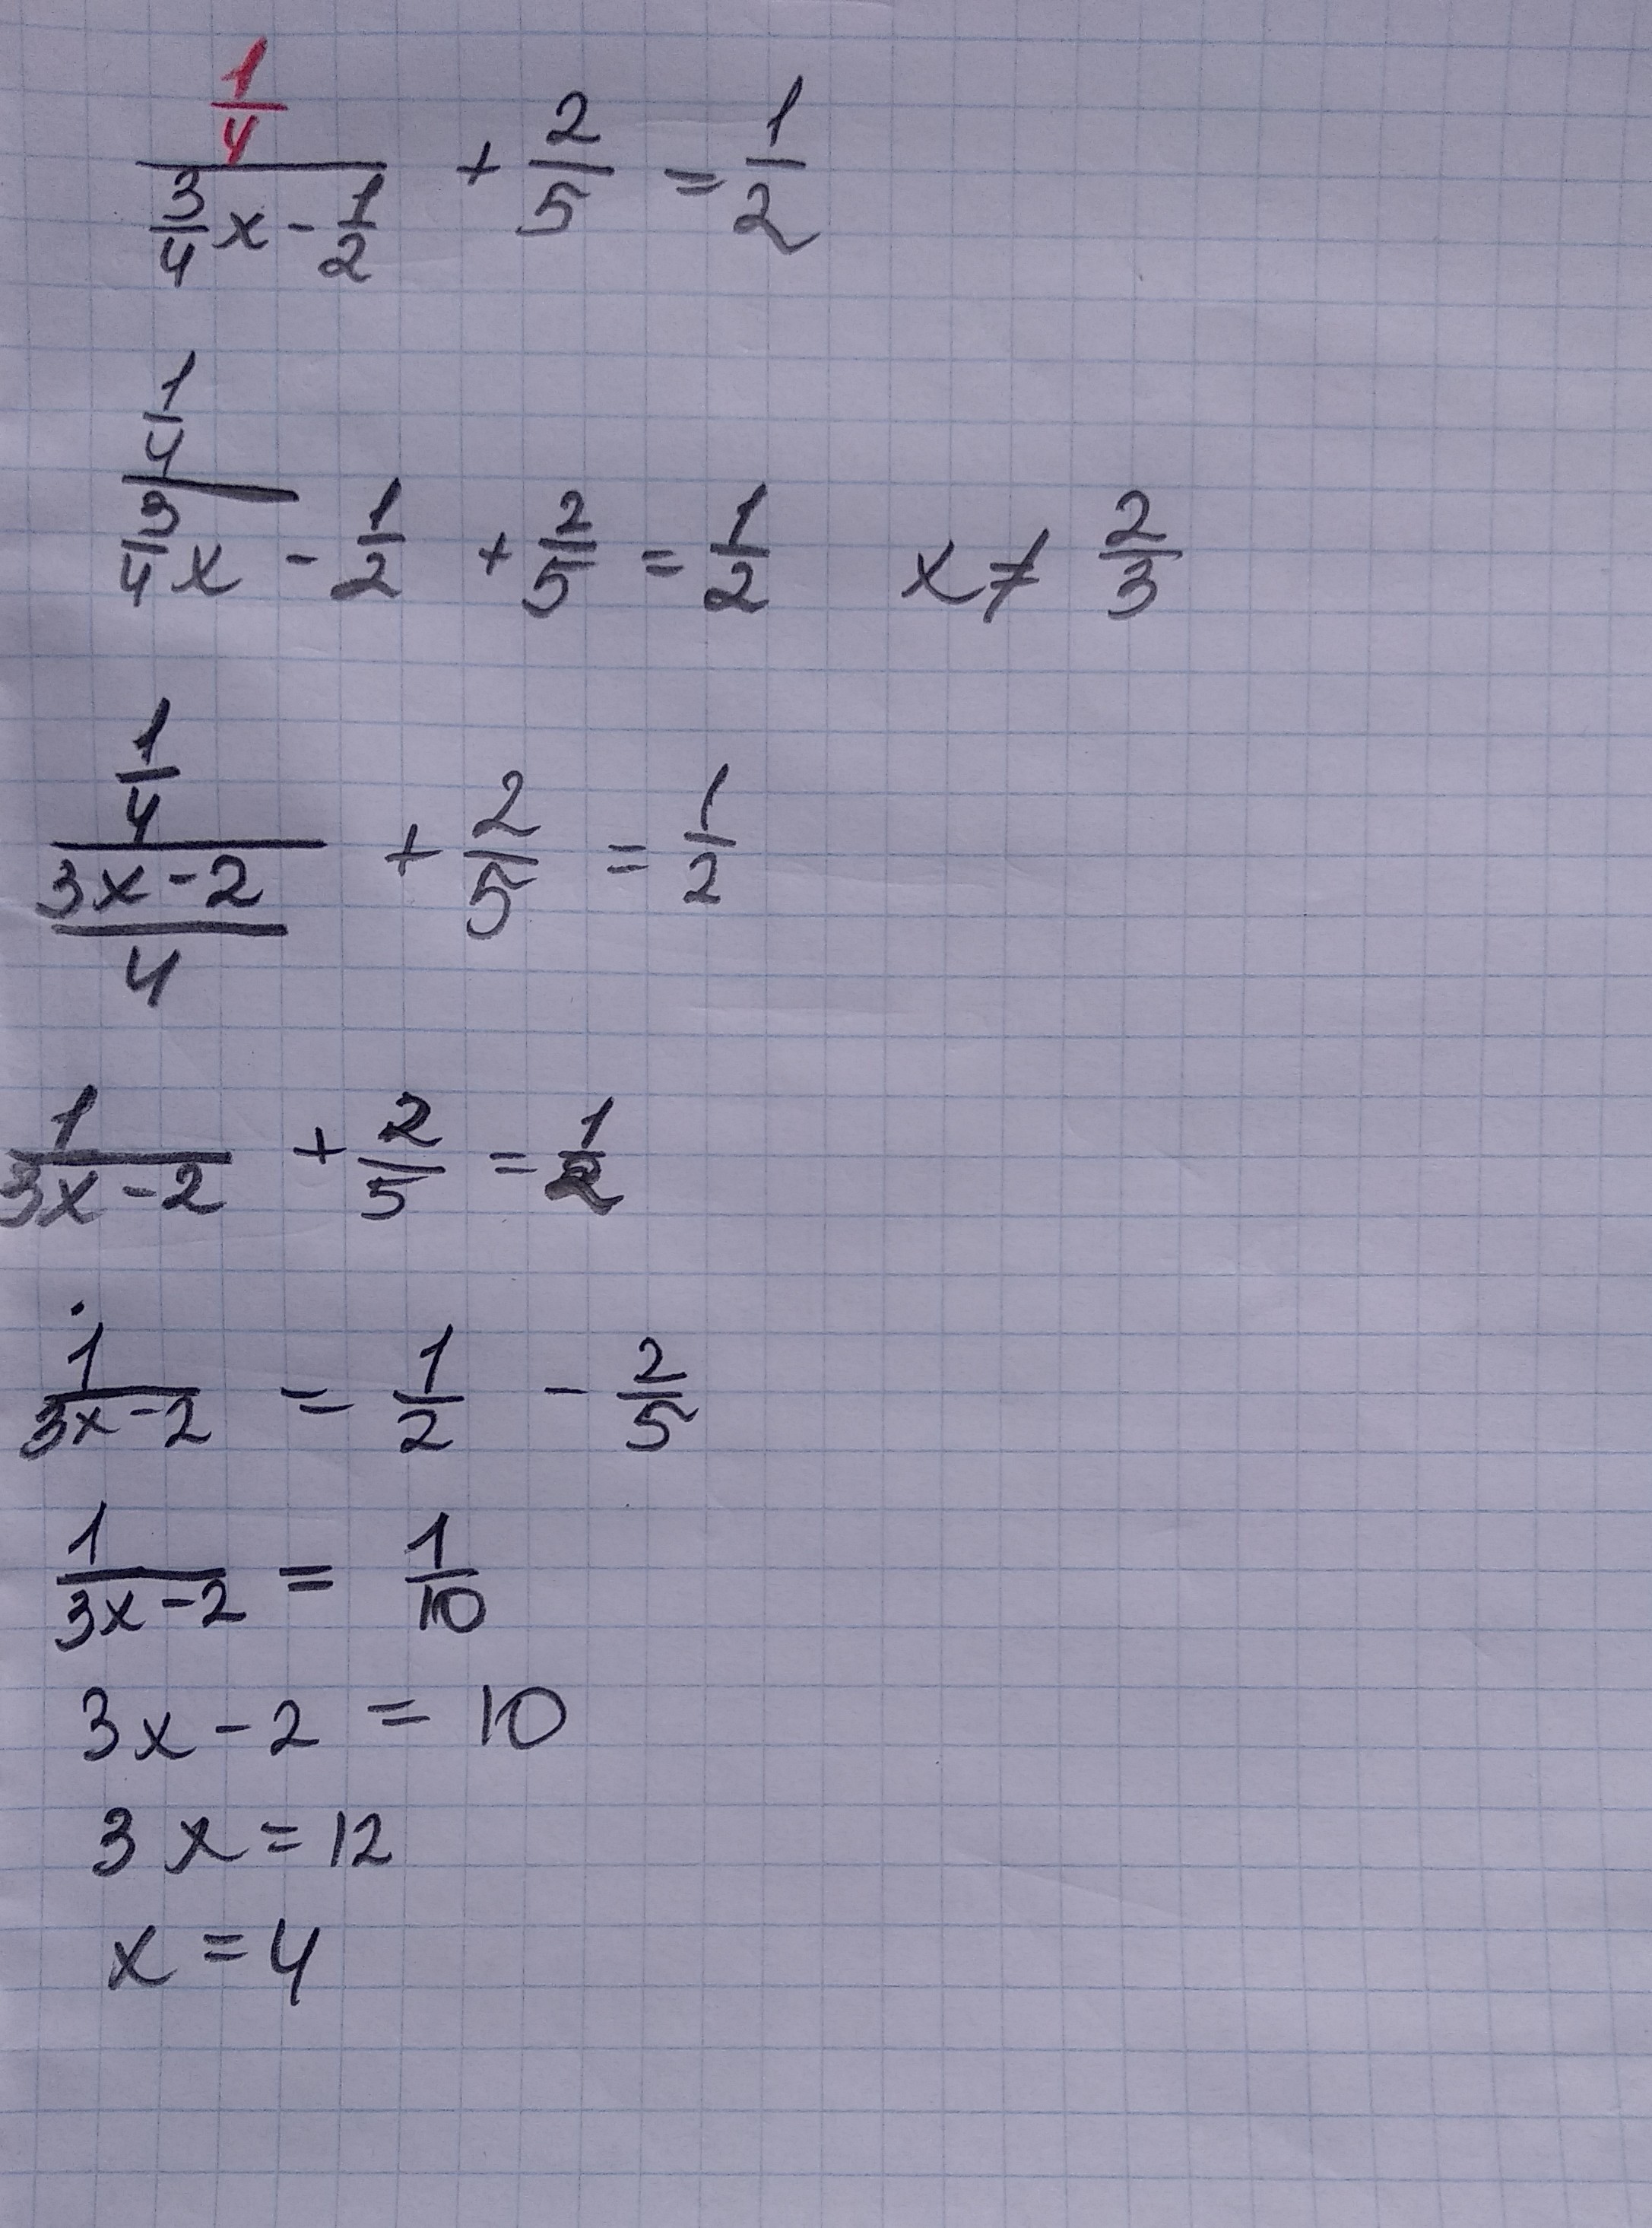 (1/4)/(3/4 x - 1/2) + 2/5 = 1/2
(1/4)/(3/4 x) - 1/2 + 2/5 = 1/2 x ≠ 2/3
(1/4)/((3x-2)/4) + 2/5 = 1/2
1/(3x-2) + 2/5 = 1/2
1/(3x-2) = 1/2 - 2/5
1/(3x-2) = 1/10
3x-2 = 10
3x = 12
x = 4